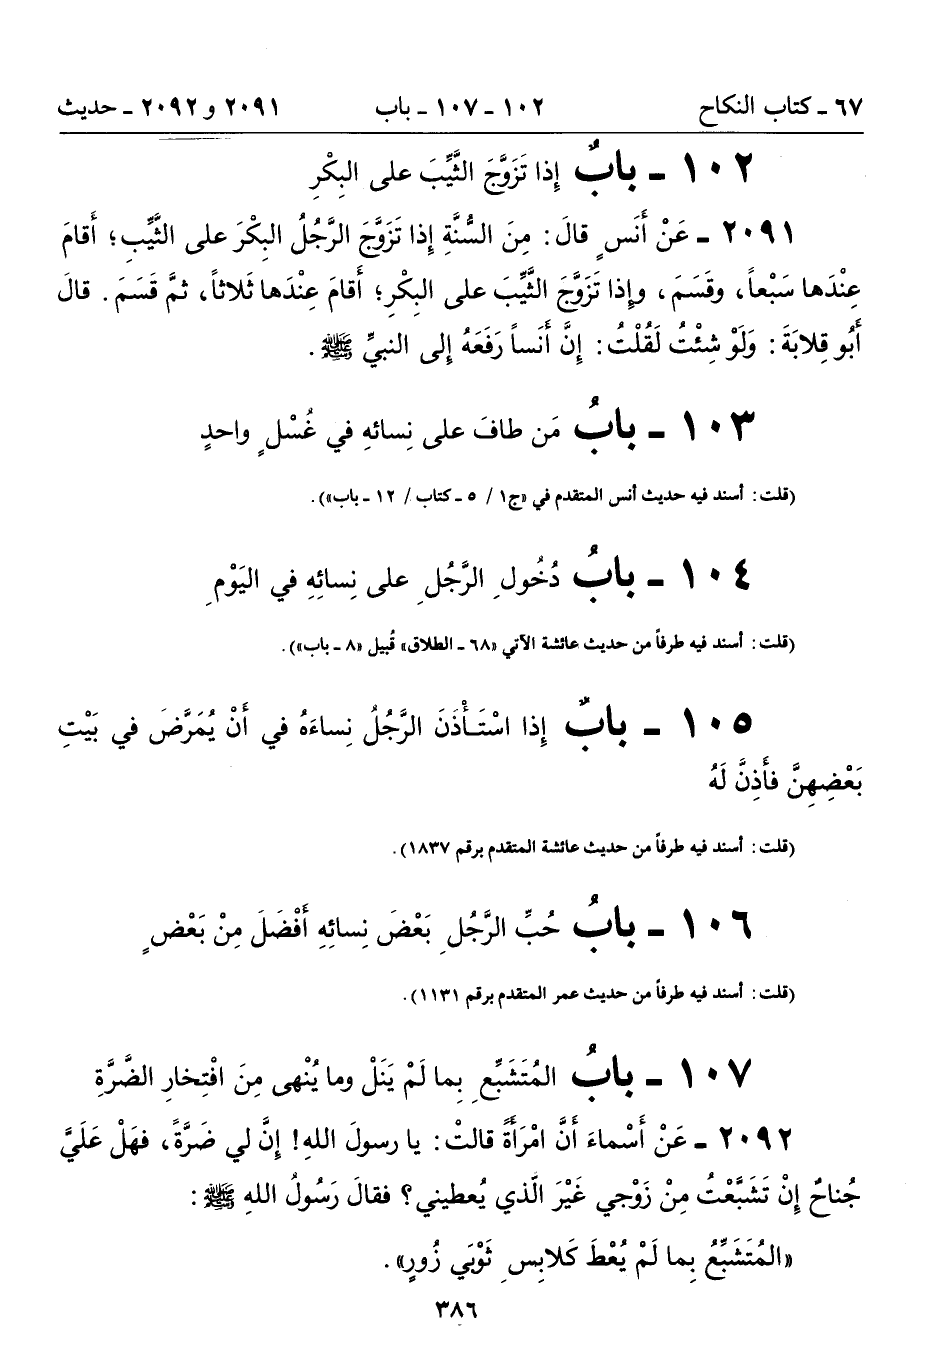 ٦٧ ـ كتاب النكاح ١٠٢ ـ ١٠٧ ـ باب ٢٠٩١ و ٢٠٩٢ ـ حديث
١٠٢ ـ بابٌ إذا تَزَوَّجَ الثَّيِّبَ على البِكْرِ
٢٠٩١ ـ عَنْ أَنَسٍ قالَ: مِنَ السُّنَّةِ إذا تَزَوَّجَ الرَّجُلُ البِكْرَ على الثَّيِّبِ؛ أَقامَ
عِنْدَها سَبْعاً، وقَسَمَ، وإذا تَزَوَّجَ الثَّيِّبَ على البِكْرِ؛ أَقامَ عِنْدَها ثَلاثاً، ثمَّ قَسَمَ. قالَ
أَبُو قِلابَةَ: وَلَوْ شِئْتُ لَقُلْتُ: إنَّ أَنَساً رَفَعَهُ إلى النبيِّ ﷺ.
١٠٣ ـ بابُ مَن طافَ على نِسائهِ في غُسْلٍ واحدٍ
(قلت: أسند فيه حديث أنس المتقدم في «ج١ / ٥ ـ كتاب / ١٢ ـ باب»).
١٠٤ ـ بابُ دُخُولِ الرَّجُلِ على نِسائِهِ في اليَوْمِ
(قلت: أسند فيه طرفاً من حديث عائشة الآتي «٦٨ ـ الطلاق» قُبيل «٨ ـ باب»).
١٠٥ ـ بابٌ إذا اسْتَأْذَنَ الرَّجُلُ نِساءَهُ في أَنْ يُمَرَّضَ في بَيْتِ
بَعْضِهِنَّ فأَذِنَّ لَهُ
(قلت: أسند فيه طرفاً من حديث عائشة المتقدم برقم ١٨٣٧).
١٠٦ ـ بابُ حُبِّ الرَّجُلِ بَعْضَ نِسائِهِ أَفْضَلَ مِنْ بَعْضٍ
(قلت: أسند فيه طرفاً من حديث عمر المتقدم برقم ١١٣١).
١٠٧ ـ بابُ المُتَشَبِّعِ بِما لَمْ يَنَلْ وما يُنْهى مِنَ افْتِخارِ الضَّرَّةِ
٢٠٩٢ ـ عَنْ أَسْماءَ أَنَّ امْرَأَةً قالتْ: يا رسولَ اللهِ! إنَّ لي ضَرَّةً، فهَلْ عَلَيَّ
جُناحٌ إنْ تَشَبَّعْتُ مِنْ زَوْجي غَيْرَ الَّذي يُعطيني؟ فقالَ رَسُولُ اللهِ ﷺ:
«المُتَشَبِّعُ بِما لَمْ يُعْطَ كَلابِسِ ثَوْبَي زُورٍ».
٣٨٦